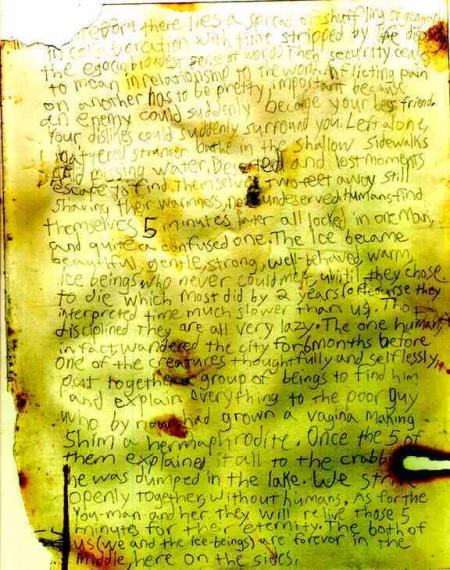 report there lies a spread of shuffling
in collaboration with time stripped by the
the egocentrical sense of words. Then security
to mean in relationship to the world. Inflicting pain
on another has to be pretty important because
an enemy could suddenly become your best friend.
Your dislikes could suddenly surround you. Left alone,
battered stranger bathe in the shallow sidewalks
water. and lost moments
escape to find themselves two feet away still
sharing their warmness, undeserved humans find
themselves 5 minutes later all locked in one man,
and quite a confused one. The Ice became
beautiful, gentle, strong, well-behaved, warm,
Ice beings who never could melt, until they chose
to die which most did by 2 years (of course they
interpreted time much slower than us). Tho
disciplined they are all very lazy. The one human,
in fact wandered the city for 6 months before
one of the creatures thoughtfully and selflessly,
put together a group of beings to find him
and explain everything to the poor guy
who by now had grown a vagina making
Shim a hermaphrodite. Once the 5 of
them explained it all to the
he was dumped in the lake. We
openly together, without humans. As for the
You-man and her they will relive those 5
minutes for their eternity. The both of
us (we and the ice-beings) are forever in the
middle, here on the sides.